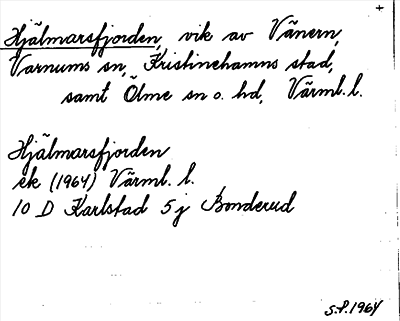 +
Hjälmarsfjorden, vik av Vänern,
Varnums sn, Kristinehamns stad,
samt Ölme sn o. hd, Värml. l.
Hjälmarsfjorden
ek (1964) Värml. l.
10 D Karlstad 5 j Bonderud
S.P. 1964